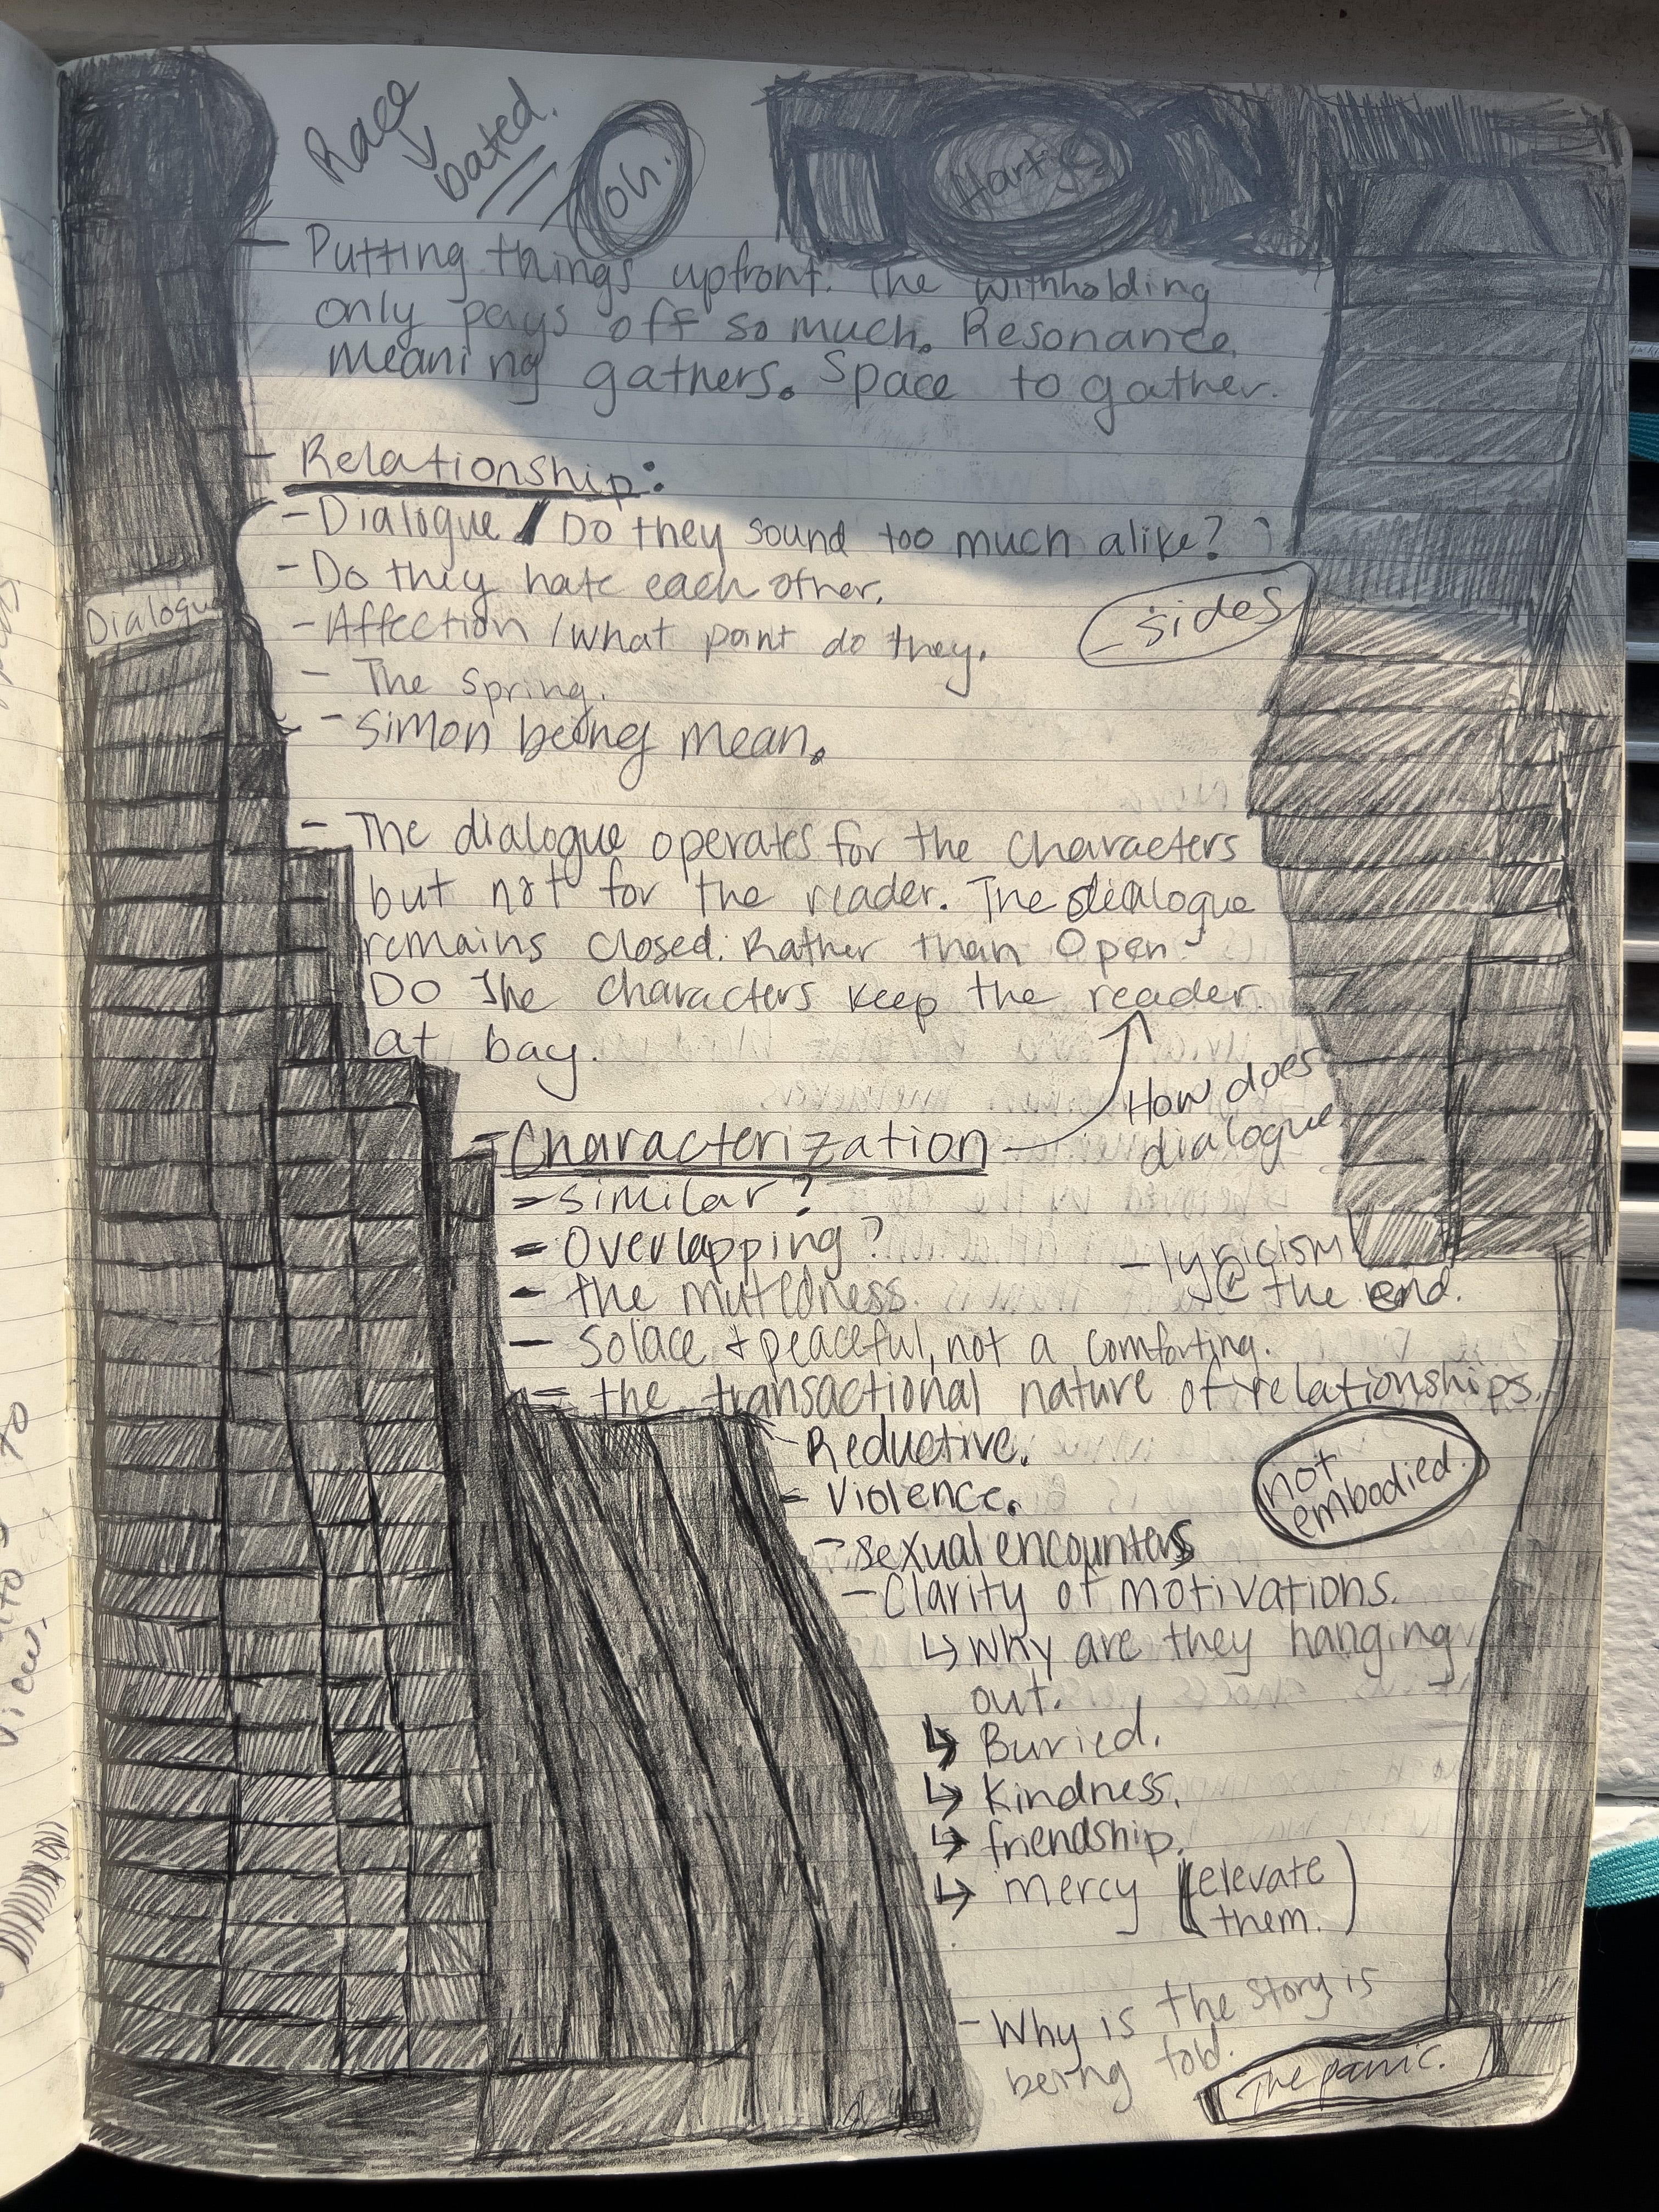 Race
bated.
oh.
- Putting things upfront. The withholding
only pays off so much. Resonance.
meaning gathers. Space to gather.
- Relationship:
- Dialogue / Do they sound too much alike?
- Do they hate each other.
- Affection / what point do they.
- sides
- The spring.
- Simon being mean.
Dialogue
- The dialogue operates for the characters
but not for the reader. The dialogue
remains closed. Rather than open -
Do the characters keep the reader
at bay.
How does
dialogue.
- Characterization
- similar?
- Overlapping?
- lyricism
@ the end.
- the mutedness.
- solace + peaceful, not a comforting.
- the transactional nature of relationships.
- Reductive.
not
embodied.
- Violence.
- sexual encounters
- Clarity of motivations.
↳ Why are they hanging
out.
↳ Buried.
↳ Kindness.
↳ friendship.
↳ mercy (elevate
them.)
- Why is the story is
being told.
The panic.
to
view.